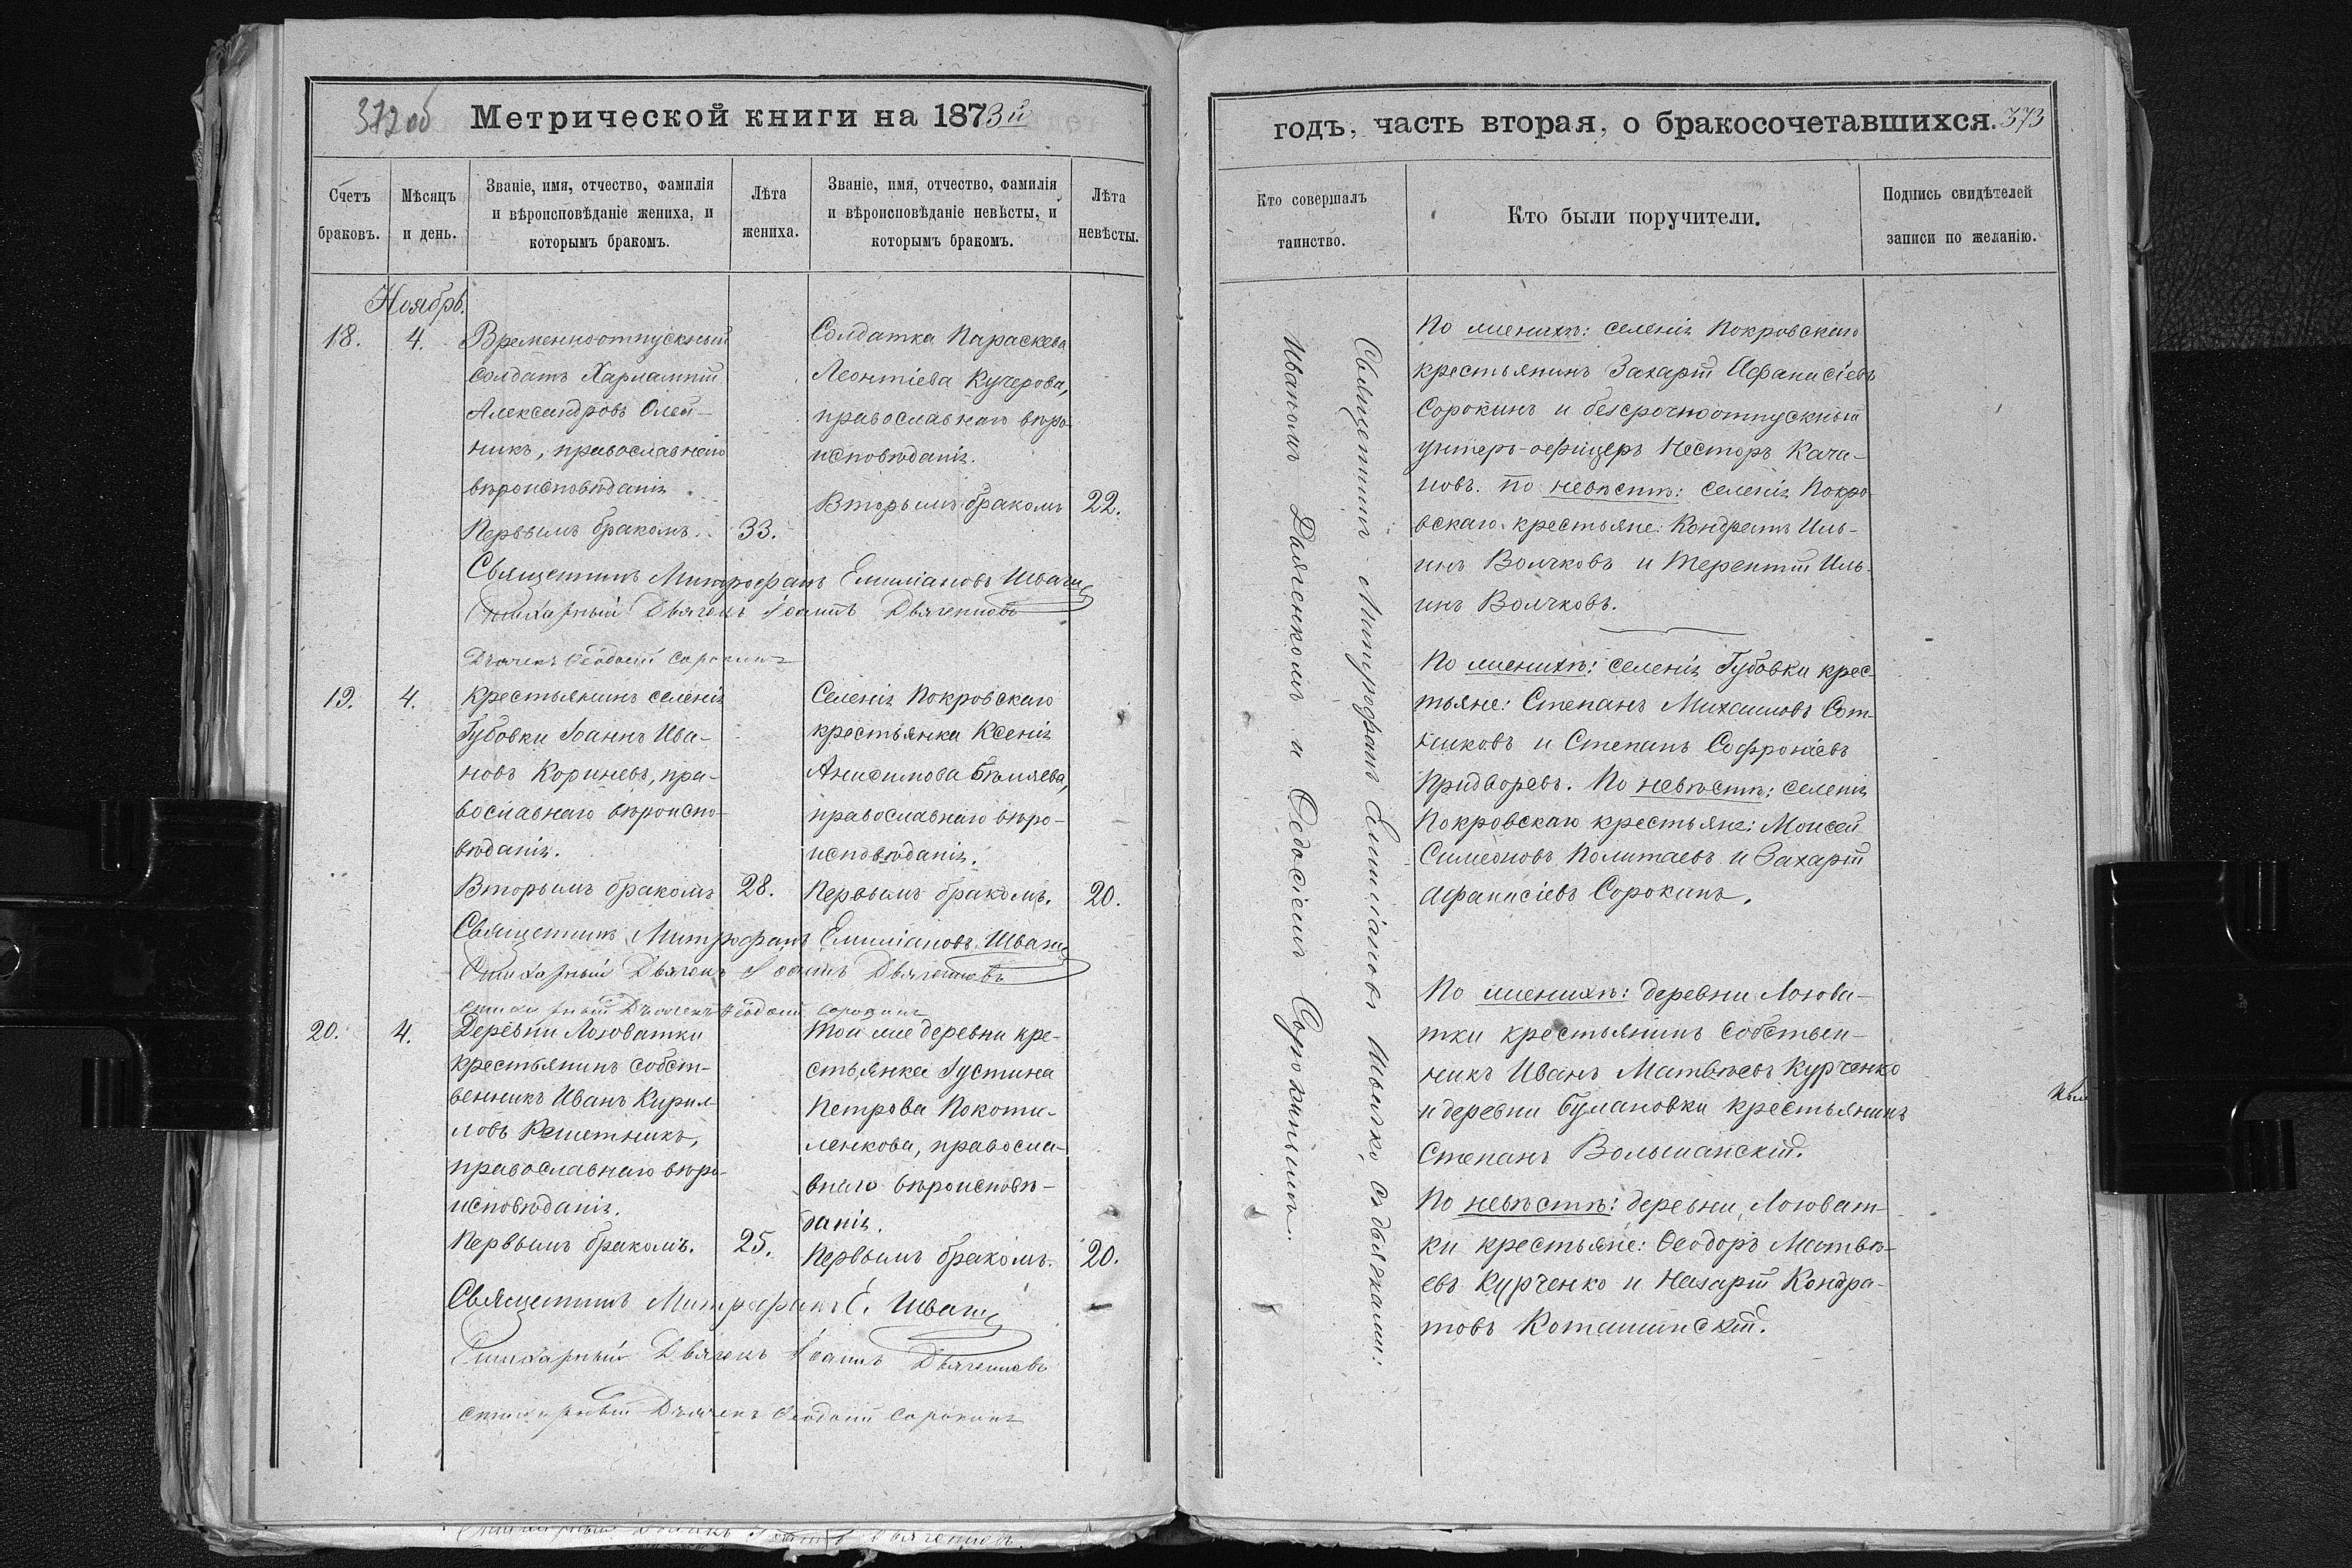 372 об
Метрической книги на 1873й
Счетъ браковъ.
Мѣсяцъ и день.
Званіе, имя, отчество, фамилія и вѣроисповѣданіе жениха, и которымъ бракомъ.
Лѣта жениха.
Званіе, имя, отчество, фамилія и вѣроисповѣданіе невѣсты, и которымъ бракомъ.
Лѣта невѣсты.
Ноябрь.
18.
4.
Временноотпускный
солдатъ Харлампій
Александровъ Олей-
никъ, православнаго
вѣроисповѣданія
Первымъ бракомъ.
33.
Солдатка Параскева
Леонтіева Кучерова,
православнаго вѣро-
исповѣданія.
Вторымъ бракомъ
22.
Священникъ Митрофанъ Емиліановъ
Стихарный Дьячекъ Іоаннъ
Дьячекъ Ѳеодосій Сорокинъ
19.
4.
Крестьянинъ селенія
Губовки Іоаннъ Ива-
новъ Кориневъ, пра-
вославнаго вѣроиспо-
вѣданія.
Вторымъ бракомъ
28.
Селенія Покровскаго
крестьянка Ксенія
Анисимова Бѣляева,
православнаго вѣро-
исповѣданія.
Первымъ бракомъ.
20.
Священникъ Митрофанъ Емиліановъ
Стихарный Дьячекъ Іоаннъ
Стихарный Дьячекъ Ѳеодосій Сорокинъ
20.
4.
Деревни Лозоватки
крестьянинъ собст-
венникъ Иванъ Кирил-
ловъ Решетникъ,
православнаго вѣро-
исповѣданія.
Первымъ бракомъ.
25.
Той же деревни кре-
стьянка Іустина
Петрова Покоти-
ленкова, правосла-
внаго вѣроисповѣ-
данія.
Первымъ бракомъ.
20.
Священникъ Митрофанъ Е.
Стихарный Дьячекъ Іоаннъ
Стихарный Дьячекъ Ѳеодосій Сорокинъ
годъ, часть вторая, о бракосочетавшихся.
373
Кто совершалъ таинство.
Кто были поручители.
Подпись свидѣтелей записи по желанію.
Священникъ Митрофанъ Емиліановъ Ивашко, съ дьячками:
Иваномъ и Ѳеодосіемъ Сорокинымъ.
По женихѣ: селенія Покровскаго
крестьянинъ Захарій Аѳанасіевъ
Сорокинъ и безсрочноотпускный
унтеръ-офицеръ Несторъ Кача-
новъ. По невѣстѣ: селенія Покро-
вскаго крестьяне: Кондратъ Иль-
инъ Волчковъ и Терентій Иль-
инъ Волчковъ.
По женихѣ: селенія Губовки крес-
тьяне: Степанъ Михаиловъ Сот-
никовъ и Степанъ Софроніевъ
Придворевъ. По невѣстѣ: селенія
Покровскаго крестьяне: Моисей
Симеоновъ Политаевъ и Захарій
Аѳанасіевъ Сорокинъ.
По женихѣ: деревни Лозова-
тки крестьянинъ собствен-
никъ Иванъ Матвѣевъ Курченко
и деревни Булановки крестьянинъ
Степанъ Вольшанскій.
По невѣстѣ: деревни Лозоват-
ки крестьяне: Ѳеодоръ Матвѣ-
евъ Курченко и Назарій Кондра-
товъ Коташинскій.